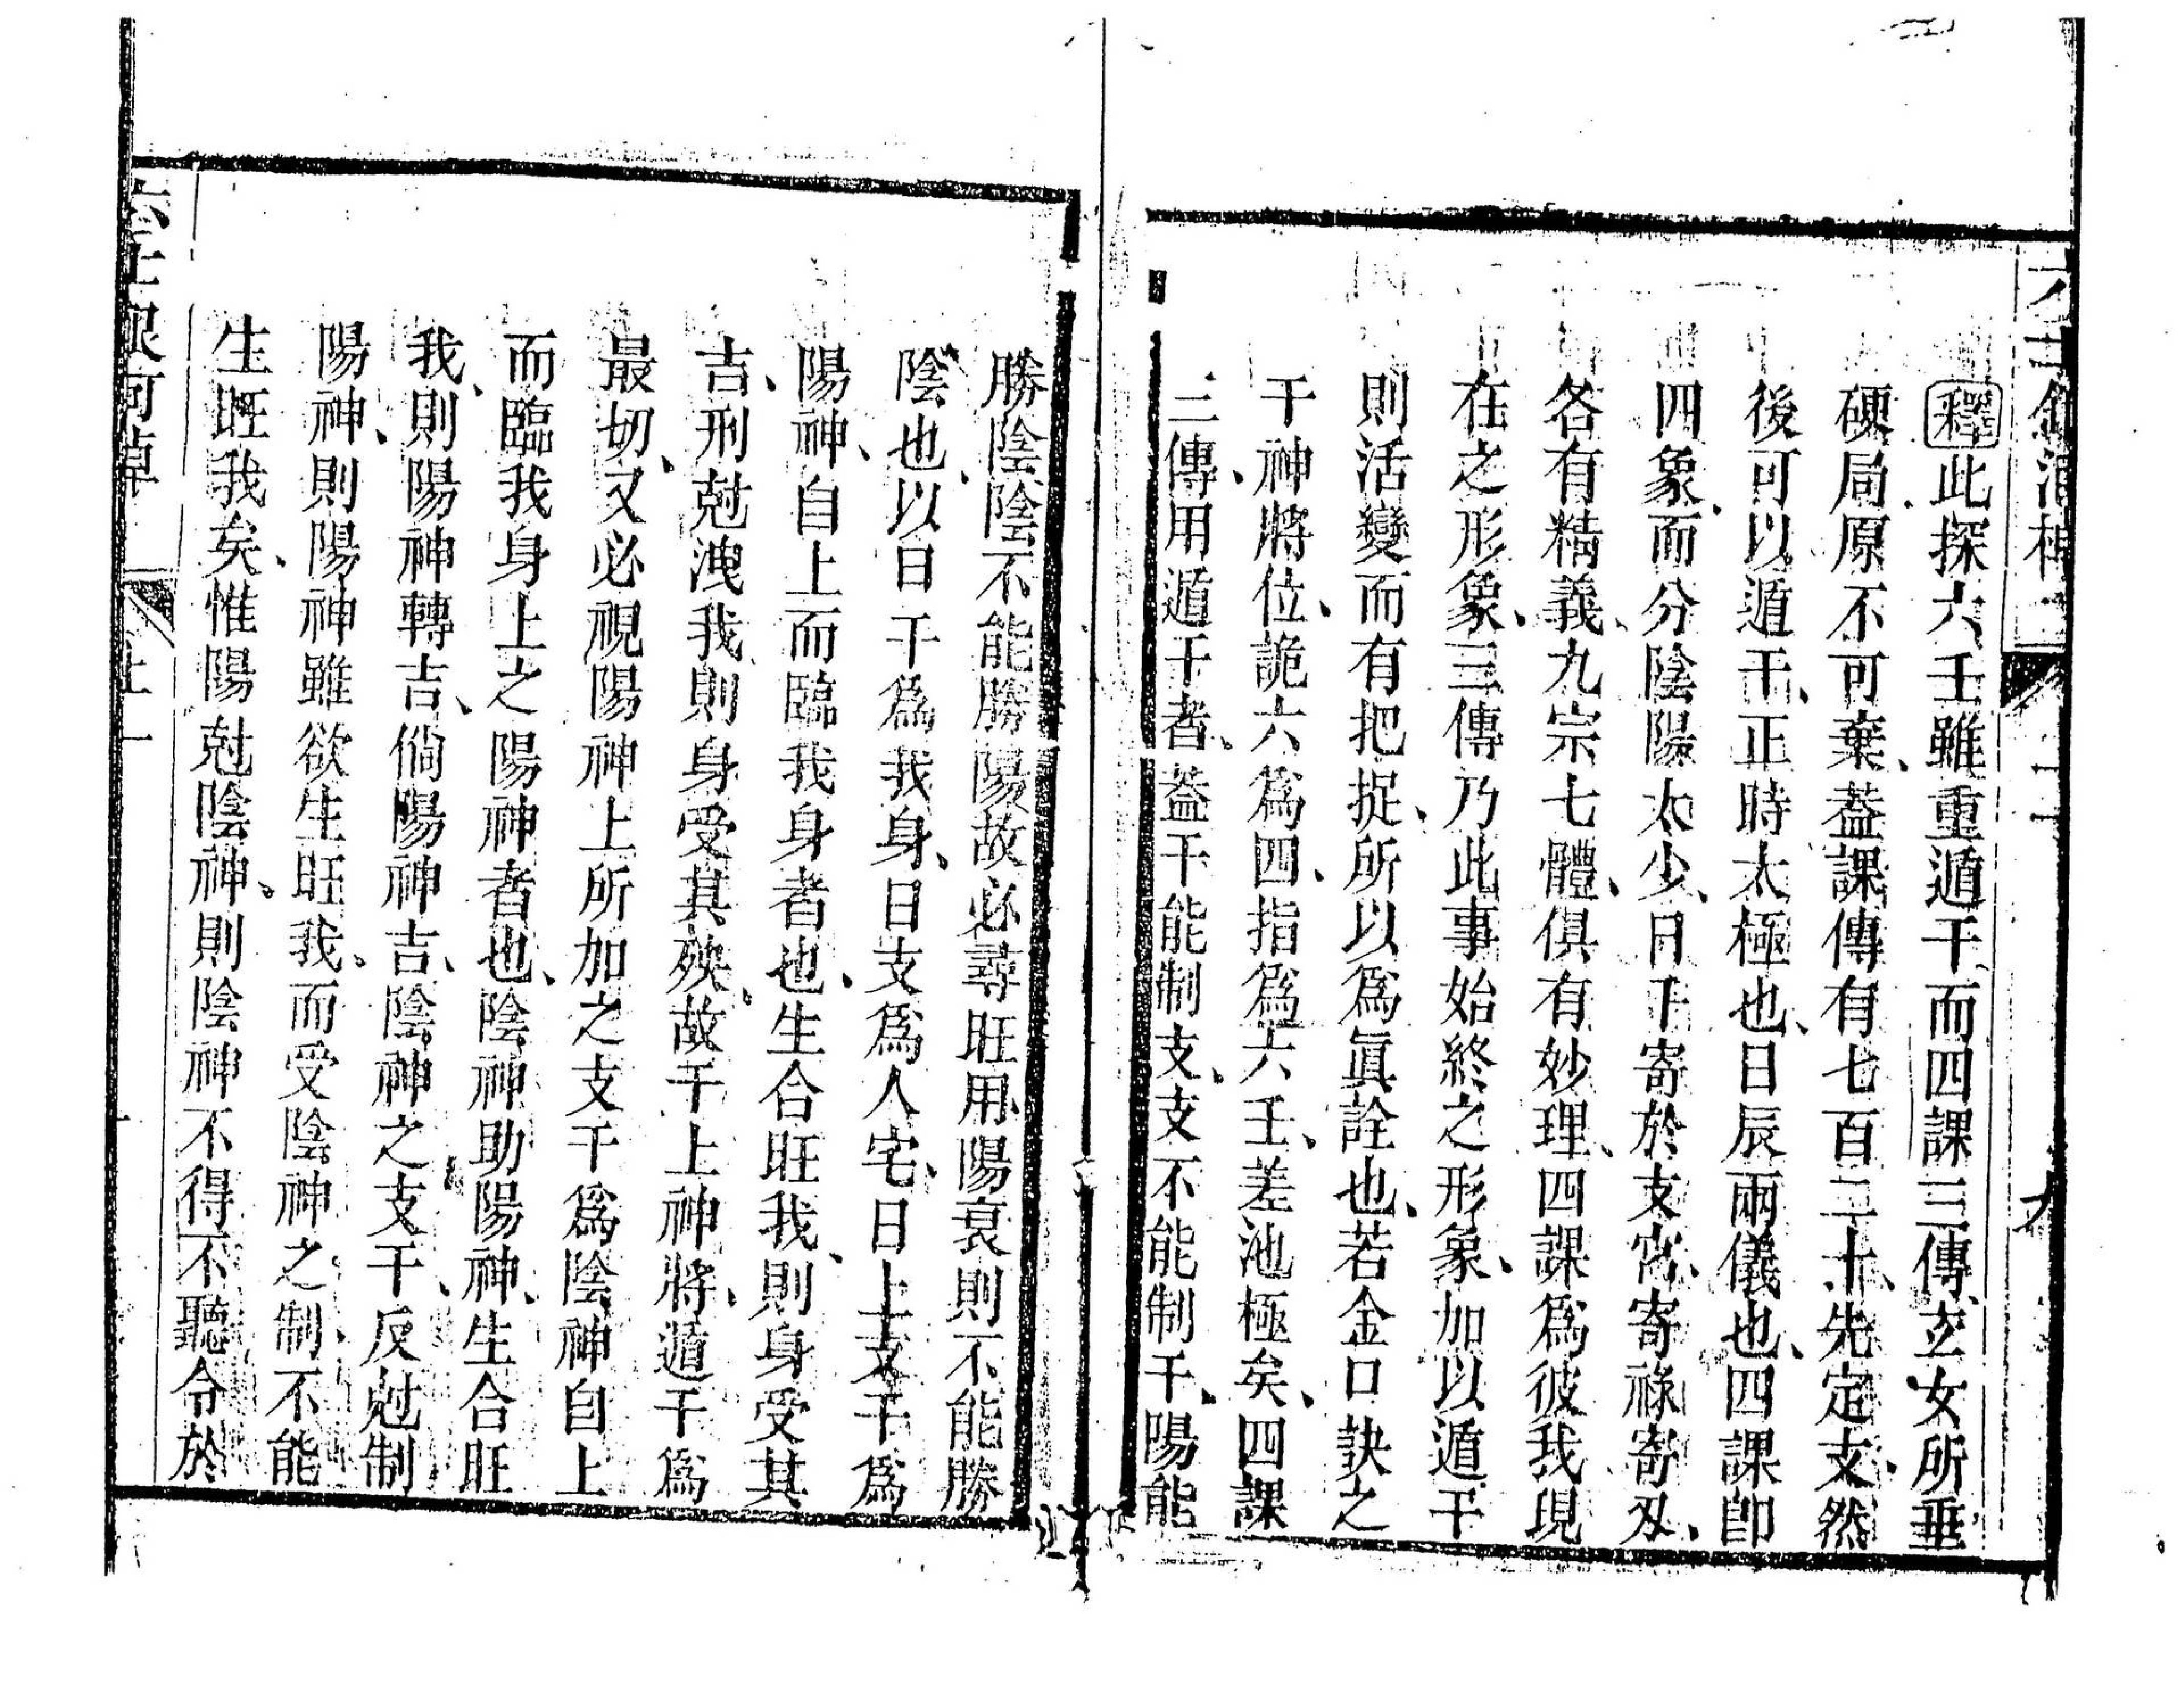 釋此探六壬雖重遁干而四課三傳玄女所垂
硬局原不可棄蓋課傳有七百二十先定支然
後可以遁干正時太極也日辰兩儀也四課卽
四象而分陰陽太少日干寄於支寄祿寄刄
各有精義九宗七體俱有妙理四課爲彼我現
在之形象三傳乃此事始終之形象加以遁干
則活變而有把捉所以爲眞詮也若金口訣之
干神將位詭六爲四指爲六壬差池極矣四課
三傳用遁干者蓋干能制支支不能制干陽能
勝陰陰不能勝陽故必尋旺用陽衰則不能勝
陰也以日干爲我身日支爲人宅日上支干爲
陽神自上而臨我身者也生合旺我則身受其
吉刑尅洩我則身受其殃故干上神將遁干爲
最切又必視陽神上所加之支干爲陰神自上
而臨我身上之陽神者也陰神助陽神生合旺
我則陽神轉吉倘陽神吉陰神之支干反尅制
陽神則陽神雖欲生旺我而受陰神之制不能
生旺我矣惟陽尅陰神則陰神不得不聽令於
六壬銀河棹